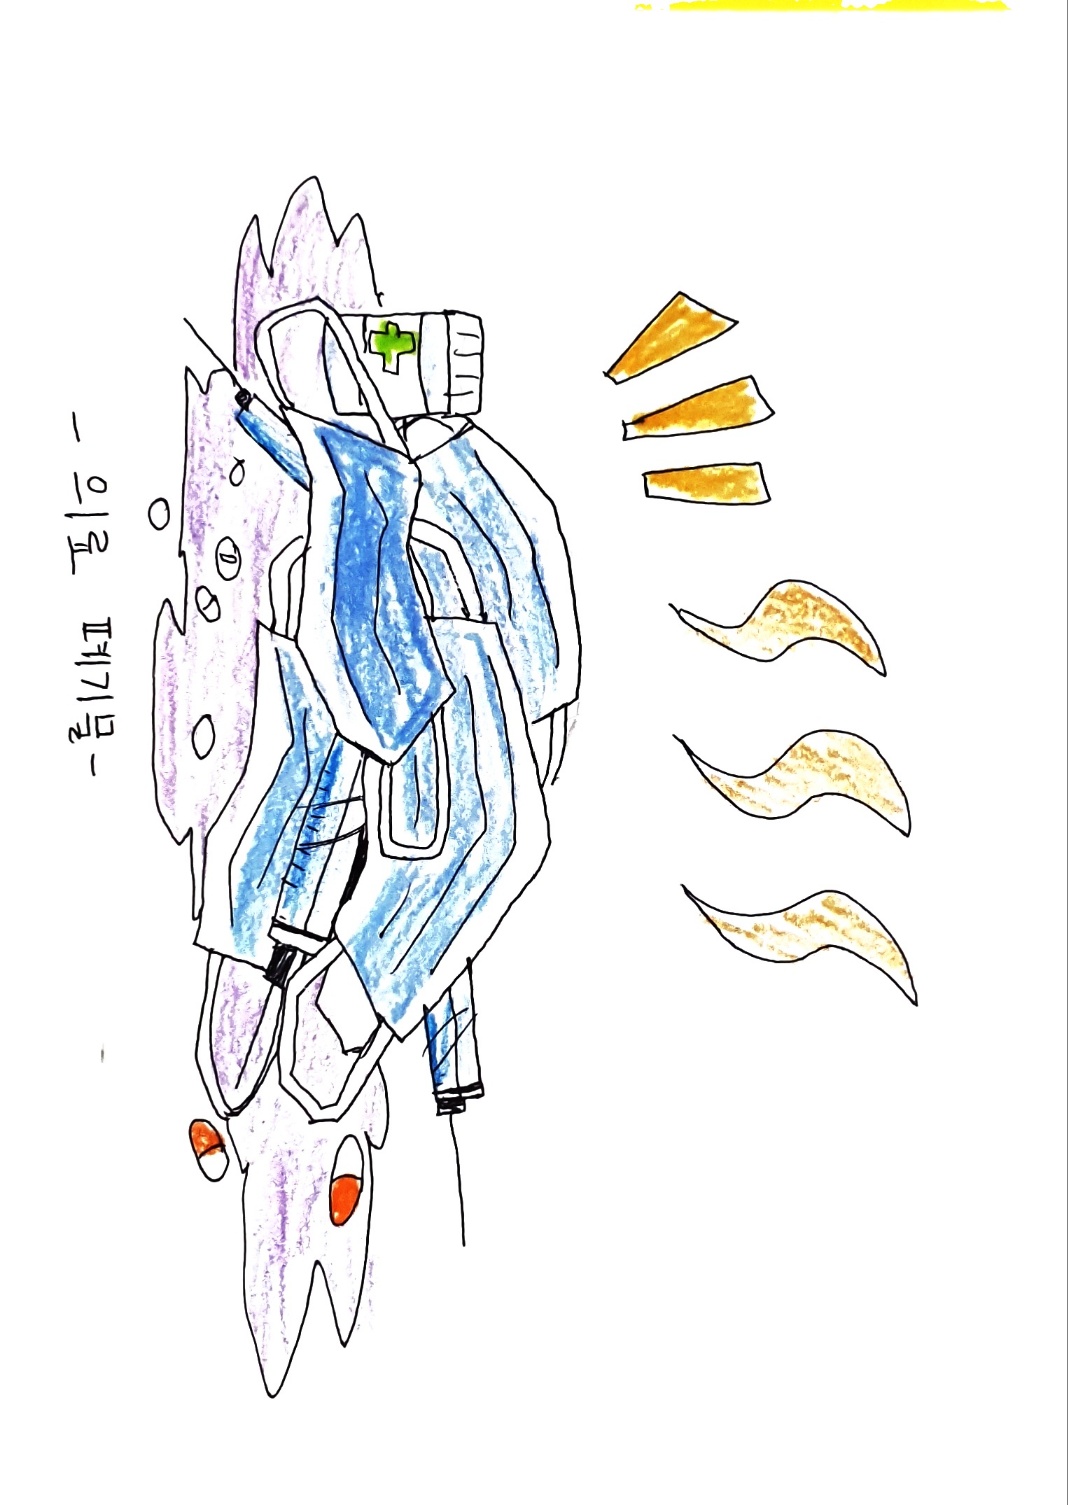 - 의료 폐기물 -